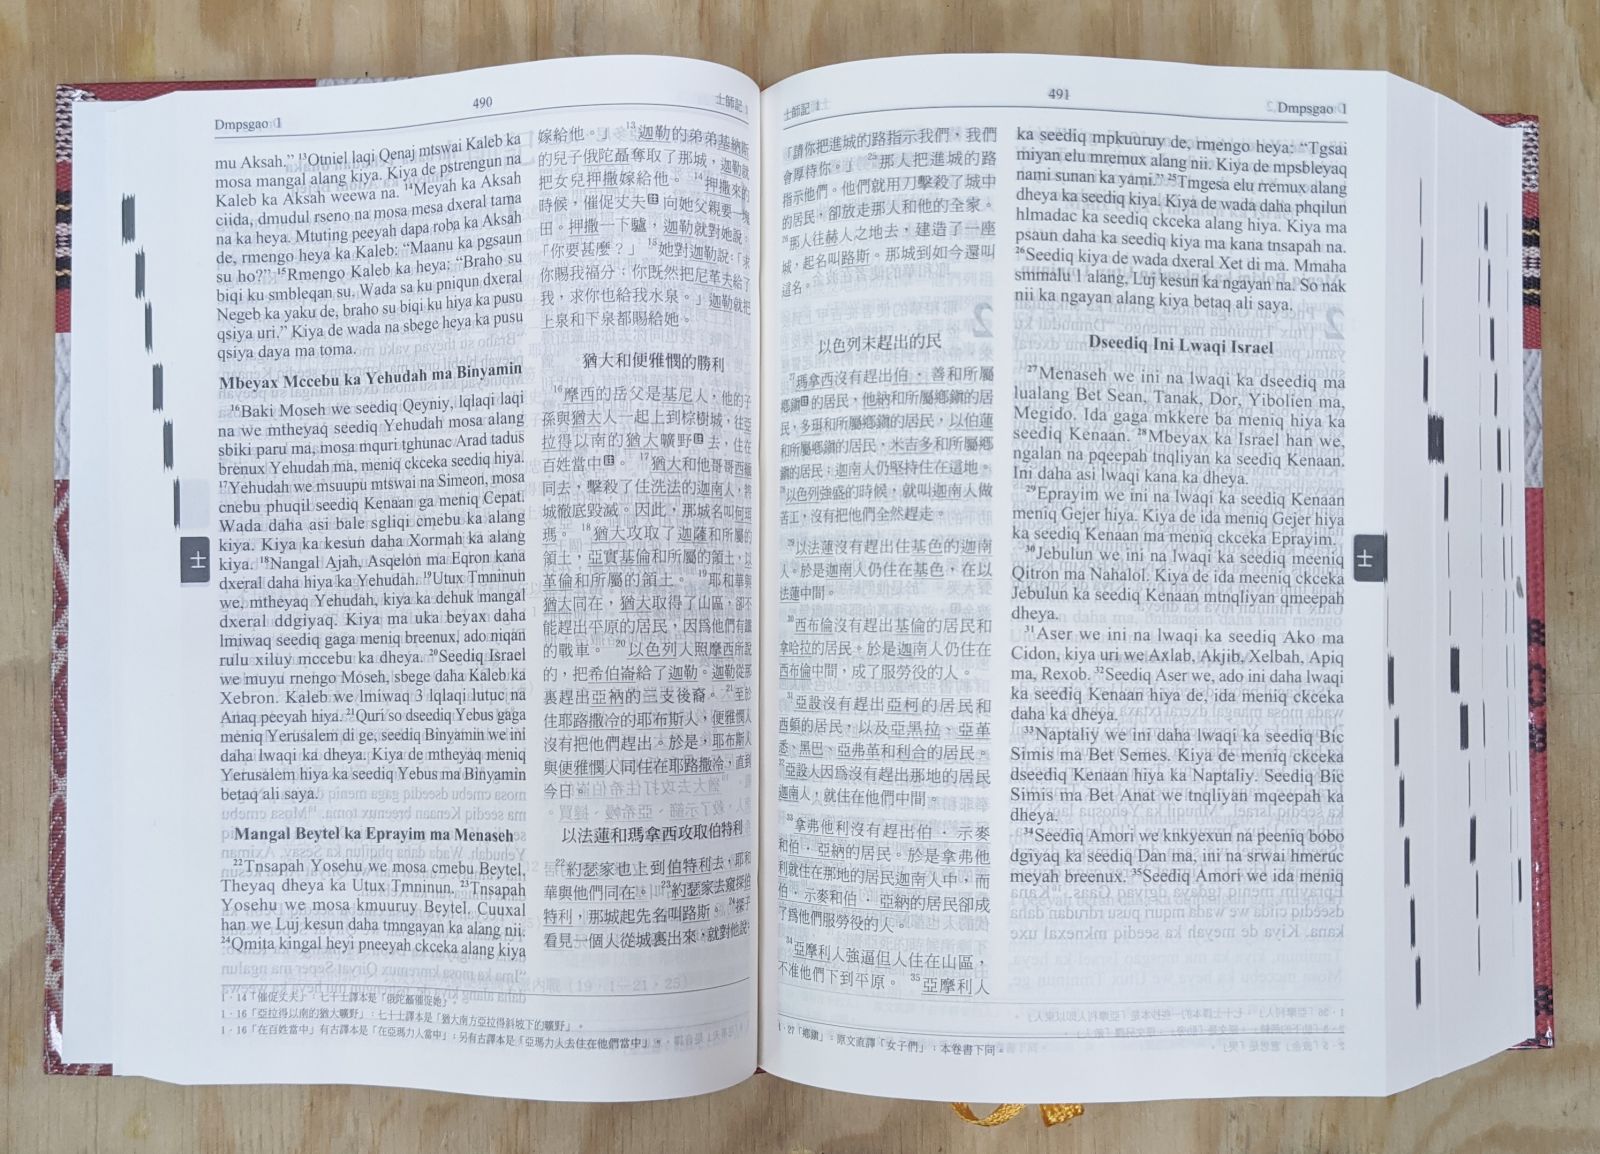 Dmpsgao 1
490
士師記 1
mu Aksah.” 13Otniel laqi Qenaj mtswai Kaleb ka
mosa mangal alang kiya. Kiya de pstrengun na
Kaleb ka Aksah weewa na. 14Meyah ka Aksah
ciida, dmudul rseno na mosa mesa dxeral tama
na ka heya. Mtuting peeyah dapa roba ka Aksah
de, rmengo heya ka Kaleb: “Maanu ka pgsaun
su ho?” 15Rmengo Kaleb ka heya: “Braho su
biqi ku smbleqan su. Wada sa ku pniqun dxeral
Negeb ka yaku de, braho su biqi ku hiya ka pusu
qsiya uri.” Kiya de wada na sbege heya ka pusu
qsiya daya ma toma.
Mbeyax Mccebu ka Yehudah ma Binyamin
16Baki Moseh we seediq Qeyniy, lqlaqi laqi
na we mtheyaq seediq Yehudah mosa alang
sbiki paru ma, mosa mquri tghunac Arad tadus
brenux Yehudah ma, meniq ckceka seediq hiya.
17Yehudah we msuupu mtswai na Simeon, mosa
cnebu phuqil seediq Kenaan ga meniq Cepat.
Wada daha asi bale sgliqi cmebu ka alang
kiya. Kiya ka kesun daha Xormah ka alang
kiya. 18Nangal Ajah, Asqelon ma Eqron kana
dxeral daha hiya ka Yehudah. 19Utux Tmninuh
we, mtheyaq Yehudah, kiya ka dehuk mangal
dxeral ddgiyaq. Kiya ma uka beyax daha
lmiwaq seediq gaga meniq breenux, ado niqan
rulu xiluy mccebu ka dheya. 20Seediq Israel
we muyu rnengo Moseh, sbege daha Kaleb ka
Xebron. Kaleb we lmiwaq 3 lqlaqi lutuc na
Anaq peeyah hiya. 21Quri so dseediq Yebus gaga
meniq Yerusalem di ge, seediq Binyamin we ini
daha lwaqi ka dheya. Kiya de mtheyaq meniq
Yerusalem hiya ka seediq Yebus ma Binyamin
betaq ali saya.
Mangal Beytel ka Eprayim ma Menaseh
22Tnsapah Yosehu we mosa cmebu Beytel,
Theyaq dheya ka Utux Tmninun. 23Tnsapah
Yosehu we mosa kmuuruy Beytel. Cuuxal
han we Luj kesun daha tmngayan ka alang nii.
24Qmita kingal heyi pneeyah ckceka alang kiya
嫁給他。」 13迦勒的弟弟基納斯
的兒子俄陀聶奪取了那城，迦勒就
把女兒押撒嫁給他。 14押撒來的
時候，催促丈夫向她父親要一塊
田。押撒一下驢，迦勒就對她說：
「你要甚麼？」 15她對迦勒說：「求
你賜我福分；你既然把尼革夫給了
我，求你也給我水泉。」迦勒就把
上泉和下泉都賜給她。
猶大和便雅憫的勝利
16摩西的岳父是基尼人，他的子
孫與猶大人一起上到棕樹城，往亞
拉得以南的猶大曠野去，住在
百姓當中。 17猶大和他哥哥西緬
同去，擊殺了住洗法的迦南人，將
城徹底毀滅。因此，那城名叫何珥
瑪。 18猶大攻取了迦薩和所屬的
領土，亞實基倫和所屬的領土，以
革倫和所屬的領土。 19耶和華與
猶大同在，猶大取得了山區，卻不
能趕出平原的居民，因為他們有鐵
的戰車。 20以色列人照摩西所說
的，把希伯崙給了迦勒。迦勒從那
裏趕出亞衲的三支後裔。 21至於
住耶路撒冷的耶布斯人，便雅憫人
沒有把他們趕出。於是，耶布斯人
與便雅憫人同住在耶路撒冷，直到
今日。
以法蓮和瑪拿西攻取伯特利
22約瑟家也上到伯特利去，耶和
華與他們同在。 23約瑟家去窺探伯
特利，那城起先名叫路斯。 24探子
看見一個人從城裏出來，就對他說：
1．14「催促丈夫」：七十士譯本是「俄陀聶催促她」。
1．16「亞拉得以南的猶大曠野」：七十士譯本是「猶大南方亞拉得斜坡下的曠野」。
1．16「在百姓當中」有古譯本是「在亞瑪力人當中」；另有古譯本是「亞瑪力人去住在他們當中」。
士
士師記 1
491
Dmpsgao 1
「請你把進城的路指示我們，我們
會厚待你。」 25那人把進城的路
指示他們。他們就用刀擊殺了城中
的居民，卻放走那人和他的全家。
26那人往赫人之地去，建造了一座
城，起名叫路斯。那城到如今還叫
這名。
以色列未趕出的民
27瑪拿西沒有趕出伯．善和所屬
鄉鎮的居民，他納和所屬鄉鎮的居
民，多珥和所屬鄉鎮的居民，以伯蓮
和所屬鄉鎮的居民，米吉多和所屬鄉
鎮的居民；迦南人仍堅持住在這地。
28以色列強盛的時候，就叫迦南人做
苦工，沒有把他們全然趕走。
29以法蓮沒有趕出住基色的迦南
人。於是迦南人仍住在基色，在以
法蓮中間。
30西布倫沒有趕出基倫的居民和
拿哈拉的居民。於是迦南人仍住在
西布倫中間，成了服勞役的人。
31亞設沒有趕出亞柯的居民和
西頓的居民，以及亞黑拉、亞革
悉、黑巴、亞弗革和利合的居民。
32亞設人因為沒有趕出那地的居民
迦南人，就住在他們中間。
33拿弗他利沒有趕出伯．示麥
和伯．亞納的居民。於是拿弗他
利就住在那地的居民迦南人中。而
伯．示麥和伯．亞納的居民卻成
了為他們服勞役的人。
34亞摩利人強逼但人住在山區，
不准他們下到平原。 35亞摩利人
1．27「鄉鎮」：原文直譯「女子們」；本卷書下同。
ka seediq mpkuuruy de, rmengo heya: “Tgsai
miyan elu mremux alang nii. Kiya de mpsbleyaq
nami sunan ka yami.” 25Tmgesa elu rremux alang
dheya ka seediq kiya. Kiya de wada daha phqilun
hlmadac ka seediq ckceka alang hiya. Kiya ma
psaun daha ka seediq kiya ma kana tnsapah na.
26Seediq kiya de wada dxeral Xet di ma. Mmaha
smmalu 1 alang, Luj kesun ka ngayan na. So nak
nii ka ngayan alang kiya betaq ali saya.
Dseediq Ini Lwaqi Israel
27Menaseh we ini na lwaqi ka dseediq ma
lualang Bet Sean, Tanak, Dor, Yibolien ma,
Megido. Ida gaga mkkere ba meniq hiya ka
seediq Kenaan. 28Mbeyax ka Israel han we,
ngalan na pqeepah tnqliyan ka seediq Kenaan.
Ini daha asi lwaqi kana ka dheya.
29Eprayim we ini na lwaqi ka seediq Kenaan
meniq Gejer hiya. Kiya de ida meniq Gejer hiya
ka seediq Kenaan ma meniq ckceka Eprayim.
30Jebulun we ini na lwaqi ka seediq meeniq
Qitron ma Nahalol. Kiya de ida meeniq ckceka
Jebulun ka seediq Kenaan mtnqliyan qmeepah
dheya.
31Aser we ini na lwaqi ka seediq Ako ma
Cidon, kiya uri we Axlab, Akjib, Xelbah, Apiq
ma, Rexob. 32Seediq Aser we, ado ini daha lwaqi
ka seediq Kenaan hiya de, ida meniq ckceka
daha ka dheya.
33Naptaliy we ini daha lwaqi ka seediq Bic
Simis ma Bet Semes. Kiya de meniq ckceka
dseediq Kenaan hiya ka Naptaliy. Seediq Bic
Simis ma Bet Anat we tnqliyan mqeepah ka
dheya.
34Seediq Amori we knkyexun na peeniq bobo
dgiyaq ka seediq Dan ma, ini na srwai hmeruc
meyah breenux. 35Seediq Amori we ida meniq
士